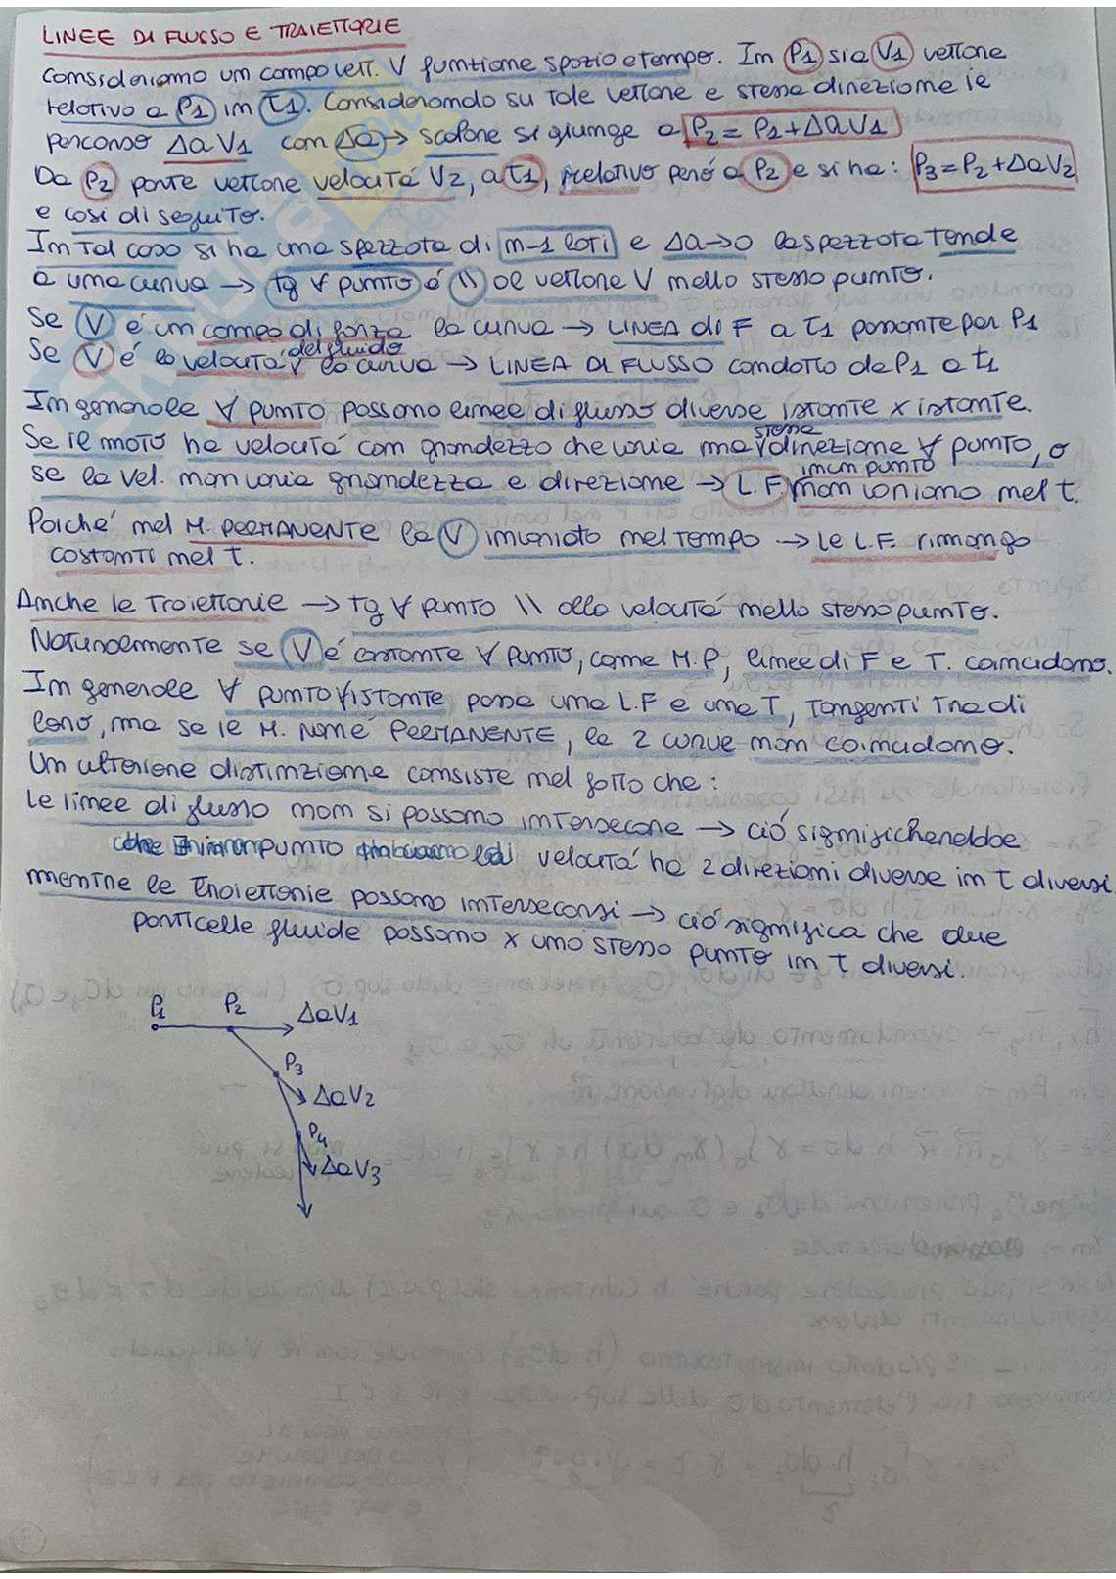 LINEE DI FLUSSO E TRAIETTORIE
Consideriamo un campo vett. V funzione spazio e tempo. In P1 sia V1 vettore
relativo a P1 in t1. Considerando su tale vettore e stessa direzione il
percorso ΔaV1 con Δa → scalare si giunge a P2 = P1 + ΔaV1
Da P2 parte vettore velocità V2, a t1, relativo però a P2 e si ha: P3 = P2 + ΔaV2
e così di seguito.
In tal caso si ha una spezzata di n-1 lati e Δa→0 la spezzata tende
a una curva → tg ∀ punto é \\ al vettore V nello stesso punto.
Se V é un campo di forza la curva → LINEA di F a t1 passante per P1
Se V é la velocitá del fluido la curva → LINEA DI FLUSSO condotta da P1 a t1
In generale ∀ punto passano linee di flusso diverse istante x istante.
Se il moto ha velocitá con grandezza che varia ma stessa direzione ∀ punto, o
se la vel. non varia grandezza e direzione in un punto → L.F. non variano nel t.
Poiché nel M. PERMANENTE la V invariata nel tempo → le L.F. rimango
costanti nel t.
Anche le traiettorie → tg ∀ punto \\ alla velocitá nello stesso punto.
Naturalmente se V é costante ∀ punto, come M.P, linee di F e T. coincidono.
In generale ∀ punto ∀ istante passa una L.F e una T, tangenti tra di
loro, ma se il M. NON é PERMANENTE, le 2 curve non coincidono.
Un ulteriore distinzione consiste nel fatto che:
le linee di flusso non si possono intersecare → ció significherebbe
che in un punto la velocitá ha 2 direzioni diverse in t diversi
mentre le traiettorie possono intersecarsi → ció significa che due
particelle fluide passano x uno stesso punto in t diversi.
P1 P2 ΔaV1
P3
ΔaV2
P4
ΔaV3